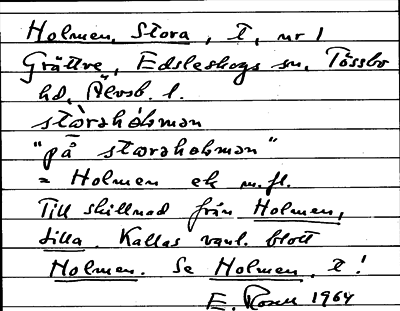 Holmen, Stora, t, nr 1
Grättve, Edsleskogs sn, Tössbo
hd, Älvsb. l.
"på
= Holmen ek m.fl.
Till skillnad från Holmen,
Lilla. Kallas vanl. blott
Holmen. Se Holmen, t!
E. Rosell 1964